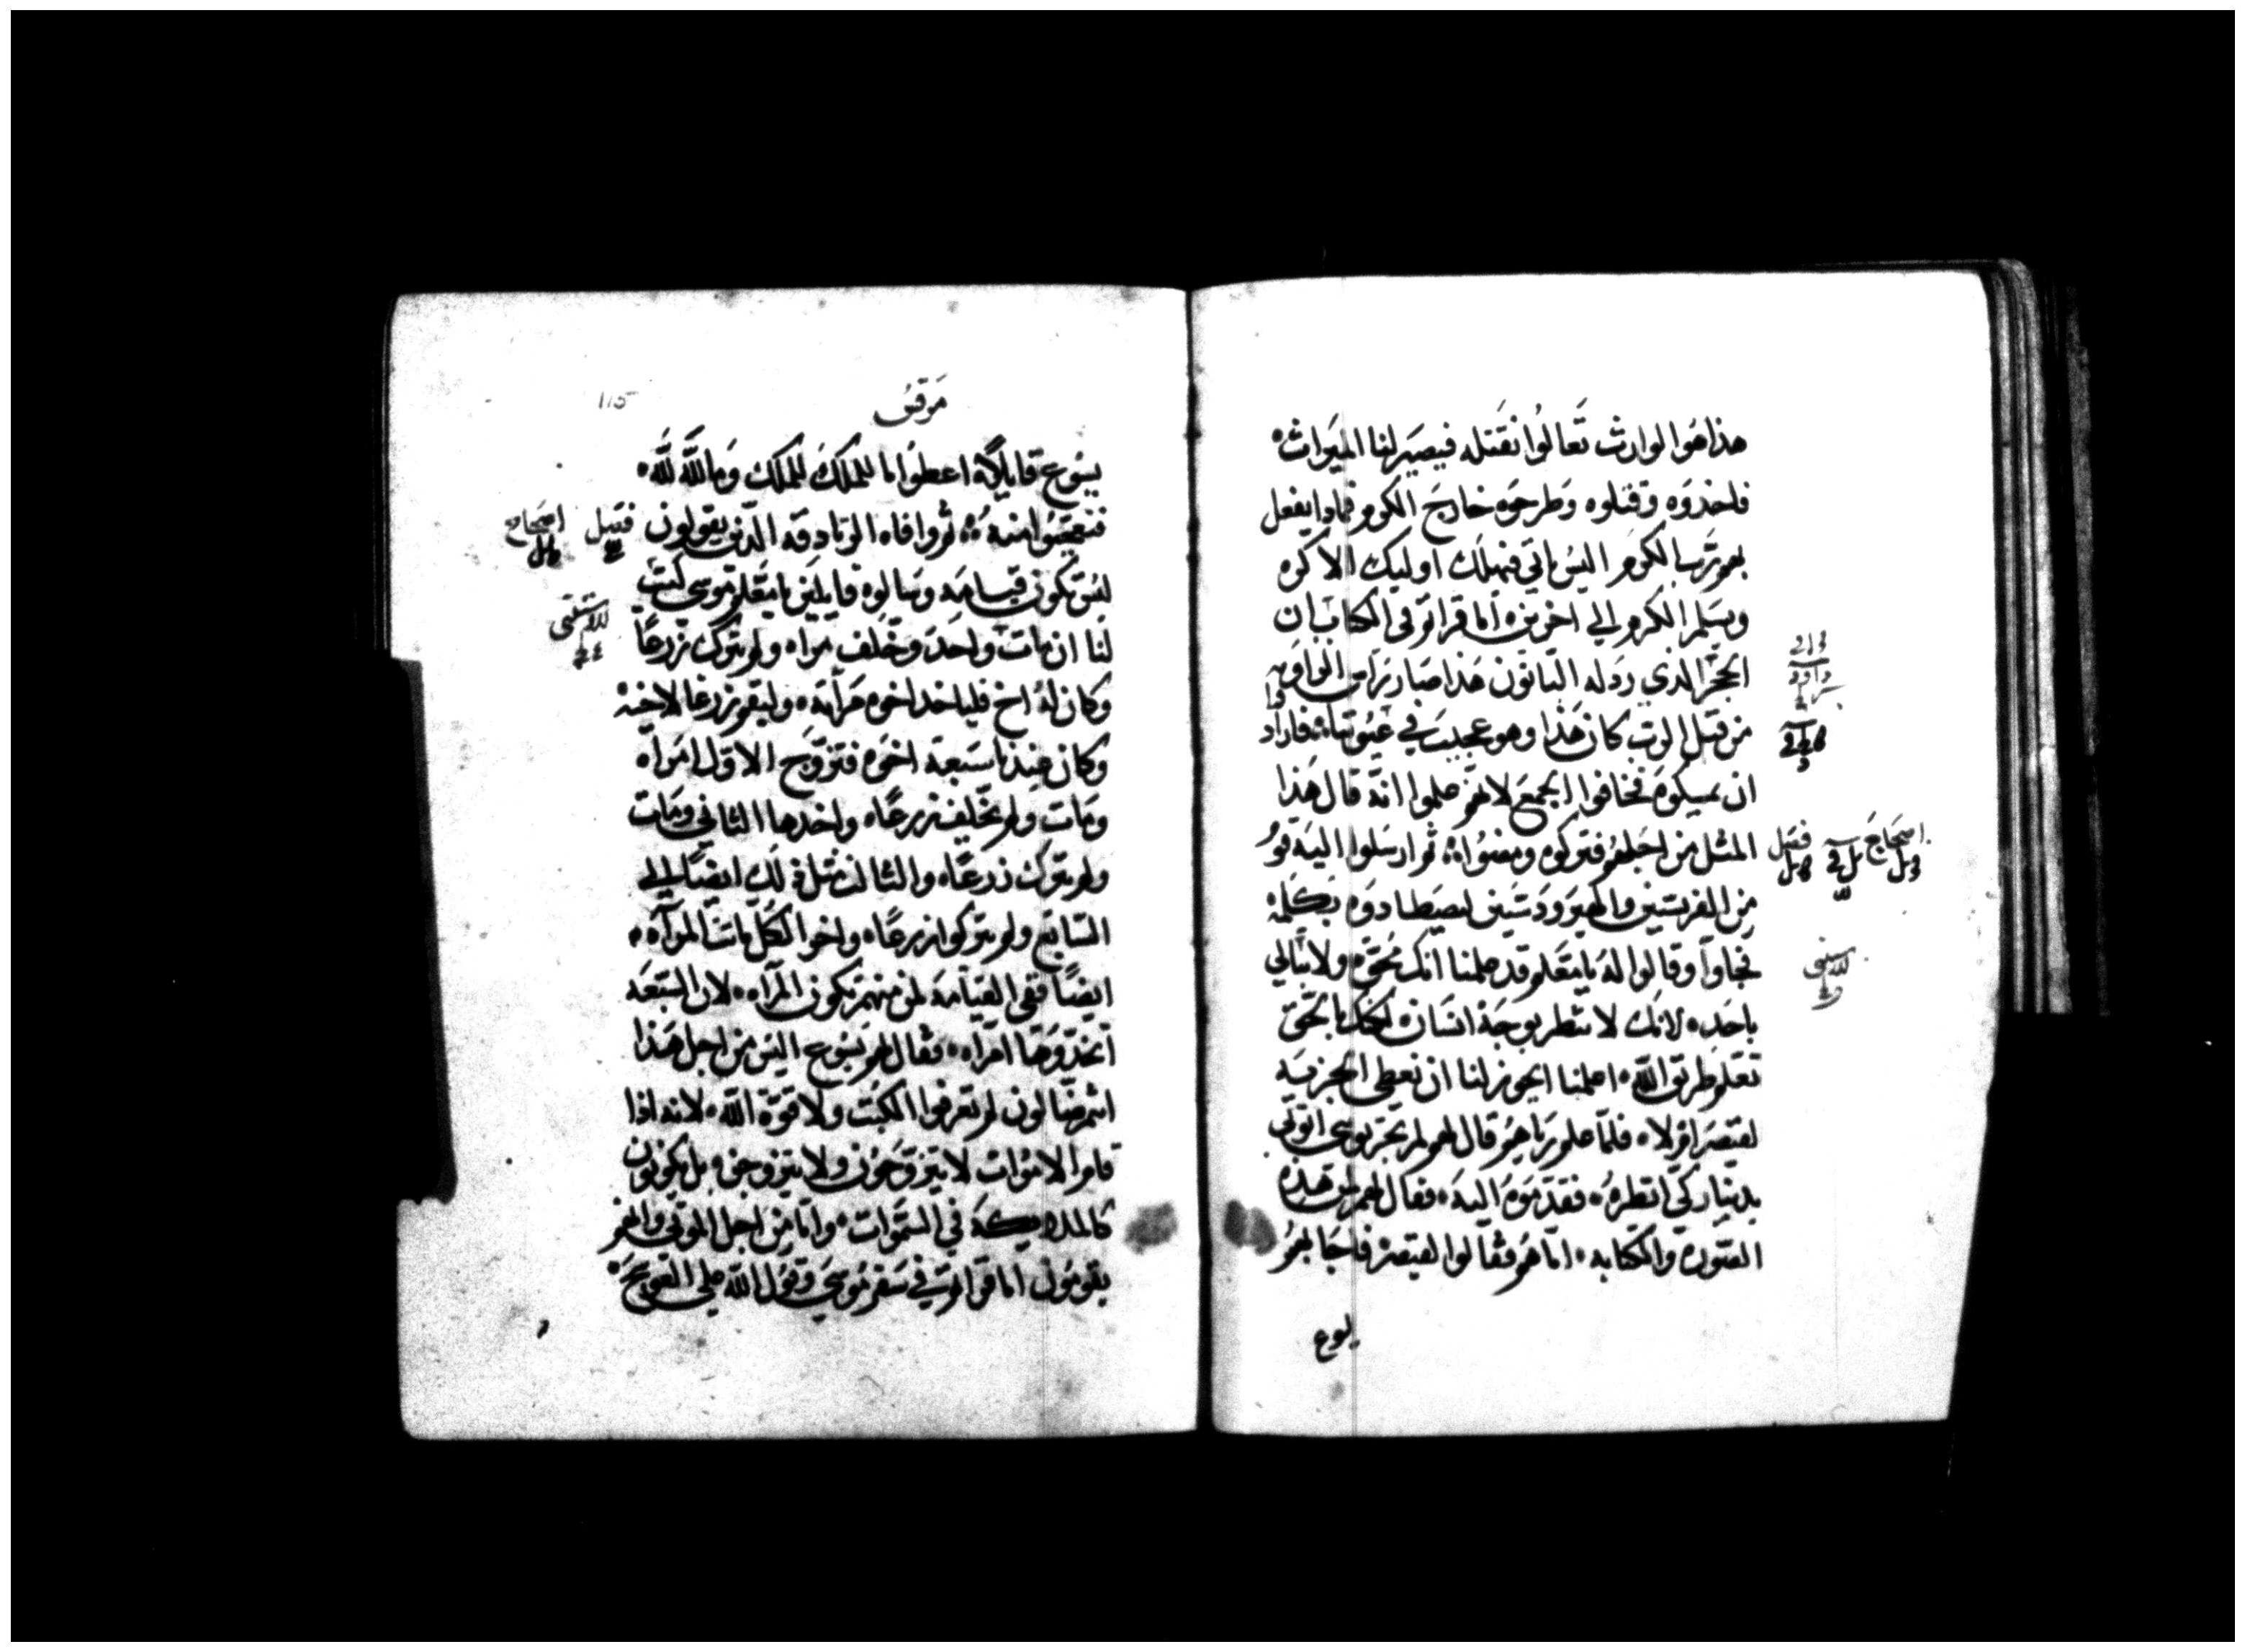 هذا هوا الوارث تعالوا نقتله فيصير لنا الميراث
فاخذوه وقتلوه وطرحوه خارج الكرم فماذا يفعل
بهم رب الكرم اليس ياتي فيهلك اوليك الاكره
ويسلم الكرم الي اخرين اما قراتم في الكتاب ان
الحجر الذي ردله البانون هذا صار راس الزاويه
من قبل الرب كان هذا وهو عجيب في عيوننا فارادوا
ان يمسكوه فخافوا الجمع لانهم علموا انه قال هذا
المثل من اجلهم فتركوه ومضوا ثم ارسلوا اليه قوم
من الفريسيين والهيرودسيين ليصطادوه بكلمه
فجاوا وقالوا له يا معلم قد علمنا انك محق ولا تبالي
باحد لانك لا تنظر بوجه انسان لكنك بالحق
تعلم طريق الله اعلمنا ايجوز لنا ان نعطي الجزيه
لقيصر ام لا فلما علم رياهم قال لهم لم تجربوني اتوني
بدينار كي انظره فقدموه اليه فقال لهم لمن هذه
الصوره والكتابه اما هم فقالوا لقيصر فاجابهم
يسوع
داود
اصحاح
فصل
مرقس
115
يسوع قايلا اعطوا ما للملك للملك وما لله لله
فتعجبوا منه ثم وافاه الزنادقه الذين يقولون
ليس تكون قيامه وسالوه قايلين يا معلم موسي كتب
لنا ان مات واحد وخلف مراه ولم يترك زرعا
وكان له اخ فلياخد اخوه مراته وليقم زرعا لاخيه
وكان عندنا سبعة اخوه فتزوج الاول امراه
ومات ولم يخلف زرعا واخدها الثاني ومات
ولم يترك زرعا والثالث مثل ذلك ايضا الي
السابع ولم يتركوا زرعا واخر الكل ماتت المرآه
ايضا ففي القيامه لمن منهم تكون المرآه لان السبعه
اتخذوها امراه فقال لهم يسوع اليس من اجل هذا
انتم ضالون لم تعرفوا الكتب ولا قوة الله لانه اذا
قاموا الاموات لا يتزوجون ولا يتزوجن بل يكونون
كالملايكه في السموات واما من اجل الموتي وانهم
يقومون اما قراتم في سفر موسي وقول الله علي العوسج
فصل
اصحاح